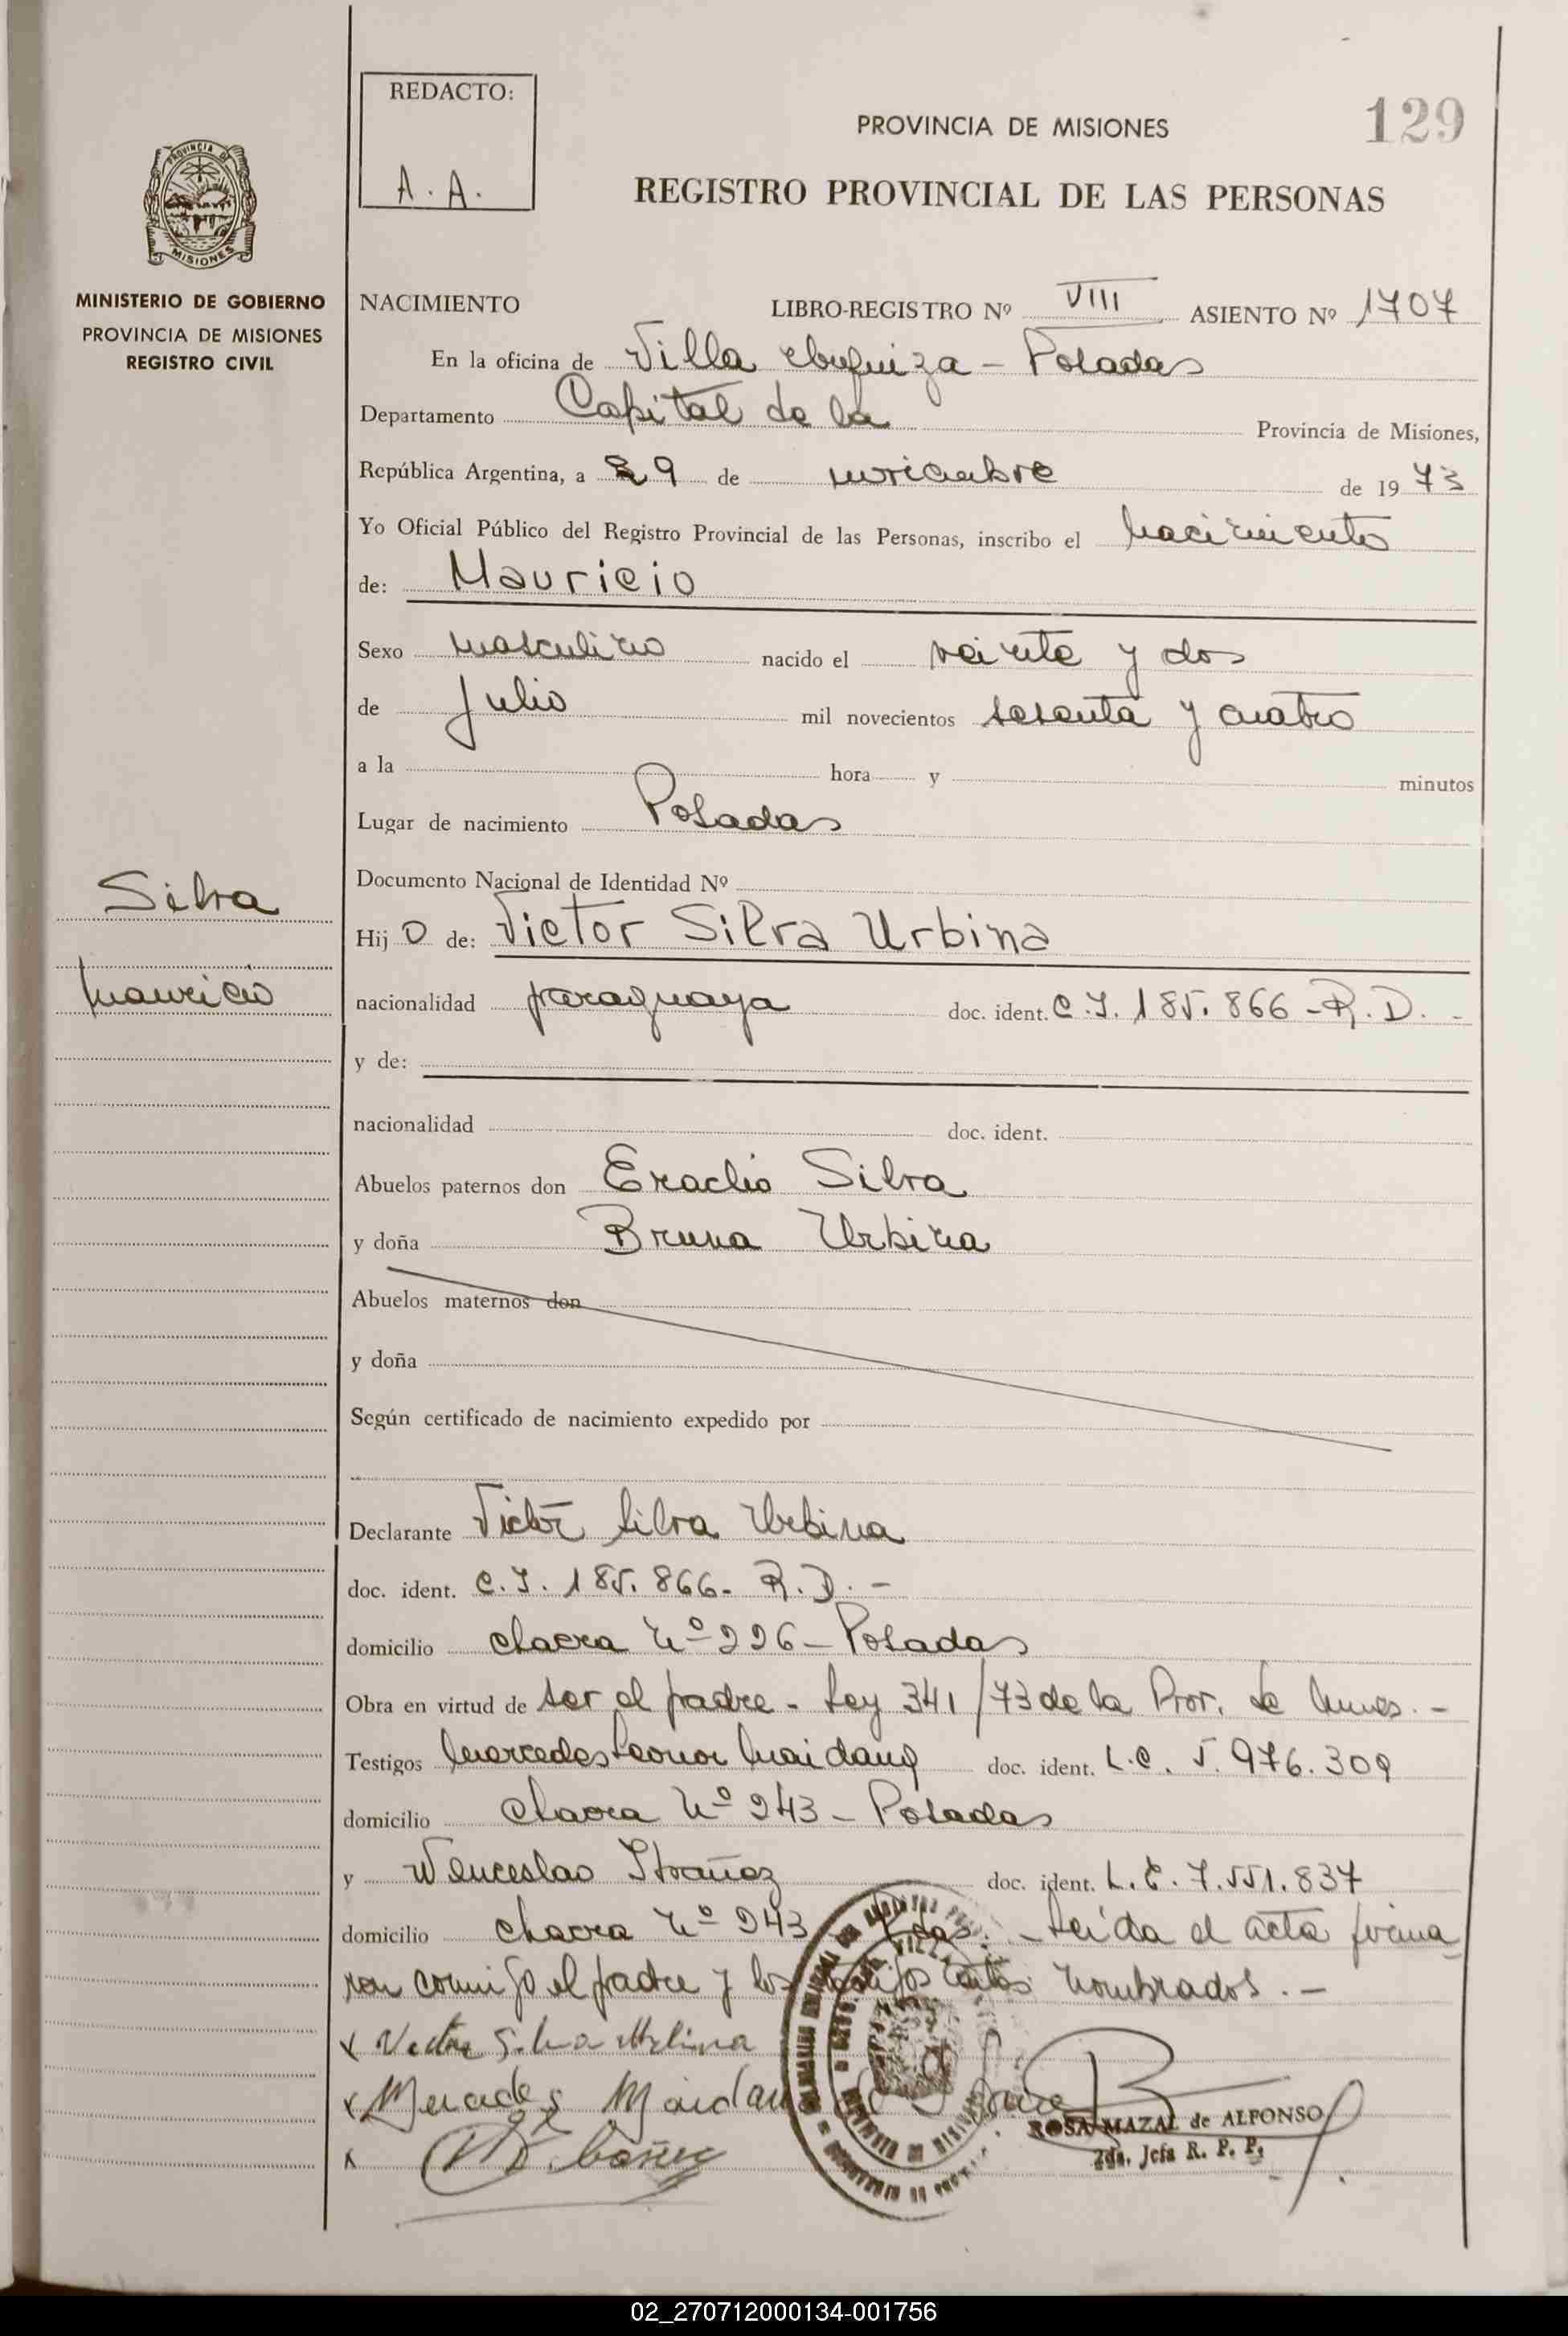 129
REDACTO:
A. A.
PROVINCIA DE MISIONES
REGISTRO PROVINCIAL DE LAS PERSONAS
PROVINCIA DE
MISIONES
MINISTERIO DE GOBIERNO
PROVINCIA DE MISIONES
REGISTRO CIVIL
NACIMIENTO LIBRO-REGISTRO Nº VIII ASIENTO Nº 1707
En la oficina de Villa - Posadas
Departamento Capital de la Provincia de Misiones,
República Argentina, a 29 de noviembre de 1973
Yo Oficial Público del Registro Provincial de las Personas, inscribo el nacimiento
de: Mauricio
Sexo masculino nacido el veinte y dos
de Julio mil novecientos sesenta y cuatro
a la hora y minutos
Lugar de nacimiento Posadas
Documento Nacional de Identidad Nº
Silva
Mauricio
Hijo de: Victor Silva Urbina
nacionalidad paraguaya doc. ident. C.I. 185.866 - R.D. -
y de:
nacionalidad doc. ident.
Abuelos paternos don Eraclio Silva
y doña Bruna Urbina
Abuelos maternos don
y doña
Según certificado de nacimiento expedido por
Declarante Victor Silva Urbina
doc. ident. C.I. 185.866- R.D. -
domicilio chacra Nº 226 - Posadas
Obra en virtud de ser el padre - Ley 341/73 de la Prov. de Mnes. -
Testigos Mercedes Leonor Maidana doc. ident. L.C. 5.976.309
domicilio chacra Nº 243 - Posadas
y Wenceslao doc. ident. L.E. 7.551.837
domicilio chacra Nº 243 Pdas. - Leida el acta firma
ron conmigo el padre y los testigos antes nombrados. -
x Victor Silva Urbina
x Mercedes Maidana
x
ROSA MAZAL de ALFONSO
2da. Jefa R. P. P.
02_270712000134-001756